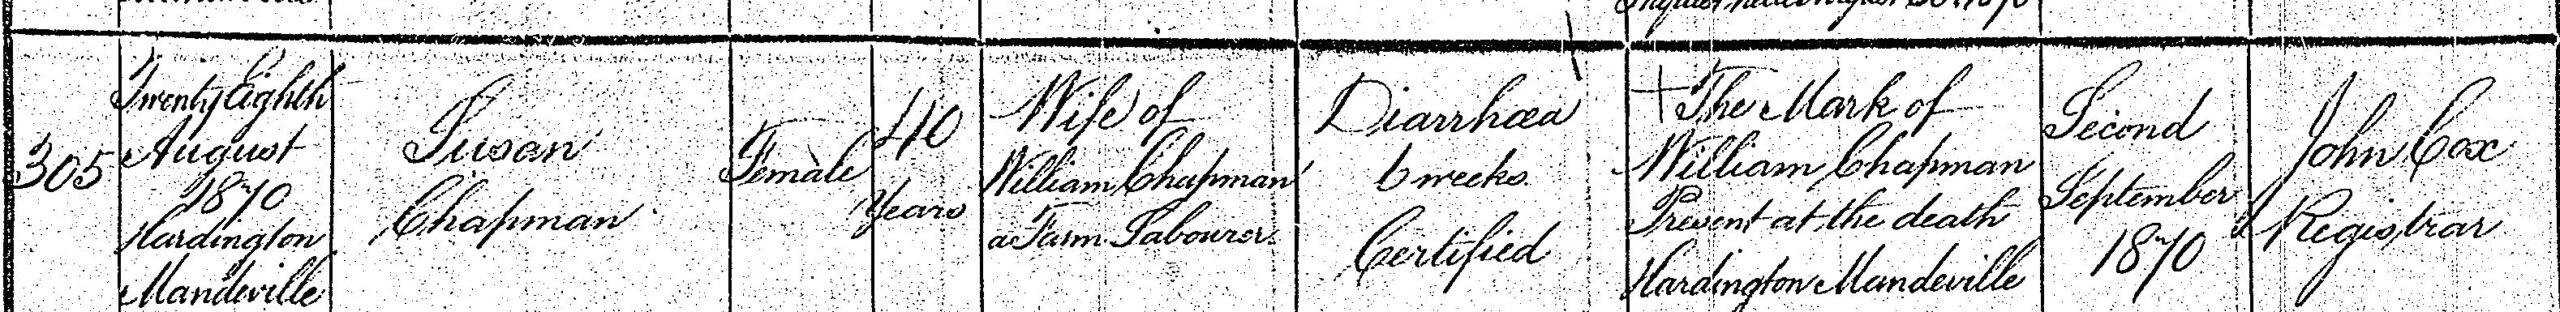 305
Twenty Eighth
August
1870
Hardington
Mandeville
Susan
Chapman
Female
40
Years
Wife of
William Chapman
a Farm Labourer
Diarrhœa
6 weeks
Certified
+ The Mark of
William Chapman
Present at the death
Hardington Mandeville
Second
September
1870
John Cox
Registrar